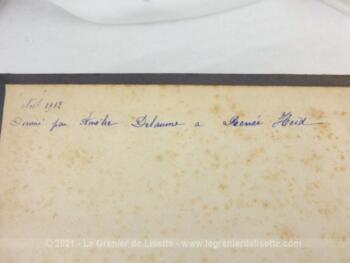 Noël 1912
Donné par Amélie Delaume a Renée Heid
©2021 - Le Grenier de Lisette - www.legrenierdelisette.com